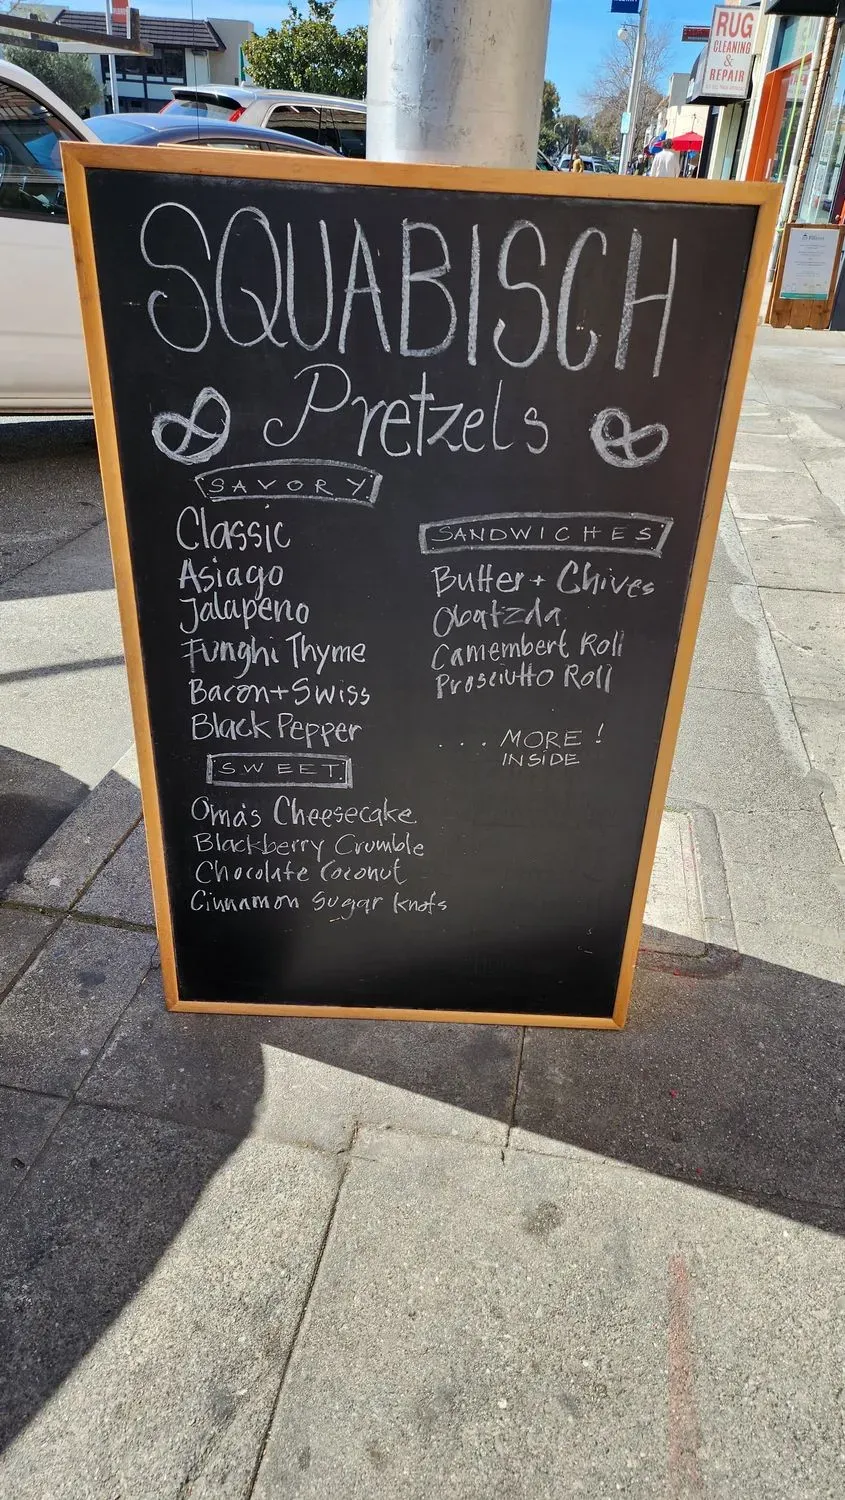 RUG
CLEANING
&
REPAIR
SQUABISCH
Pretzels
SAVORY
Classic
Asiago
Jalapeno
Funghi Thyme
Bacon + Swiss
Black Pepper
SWEET
Oma's Cheesecake
Blackberry Crumble
Chocolate Coconut
Cinnamon Sugar knots
SANDWICHES
Butter + Chives
Obatzda
Camembert Roll
Prosciutto Roll
.... MORE!
INSIDE